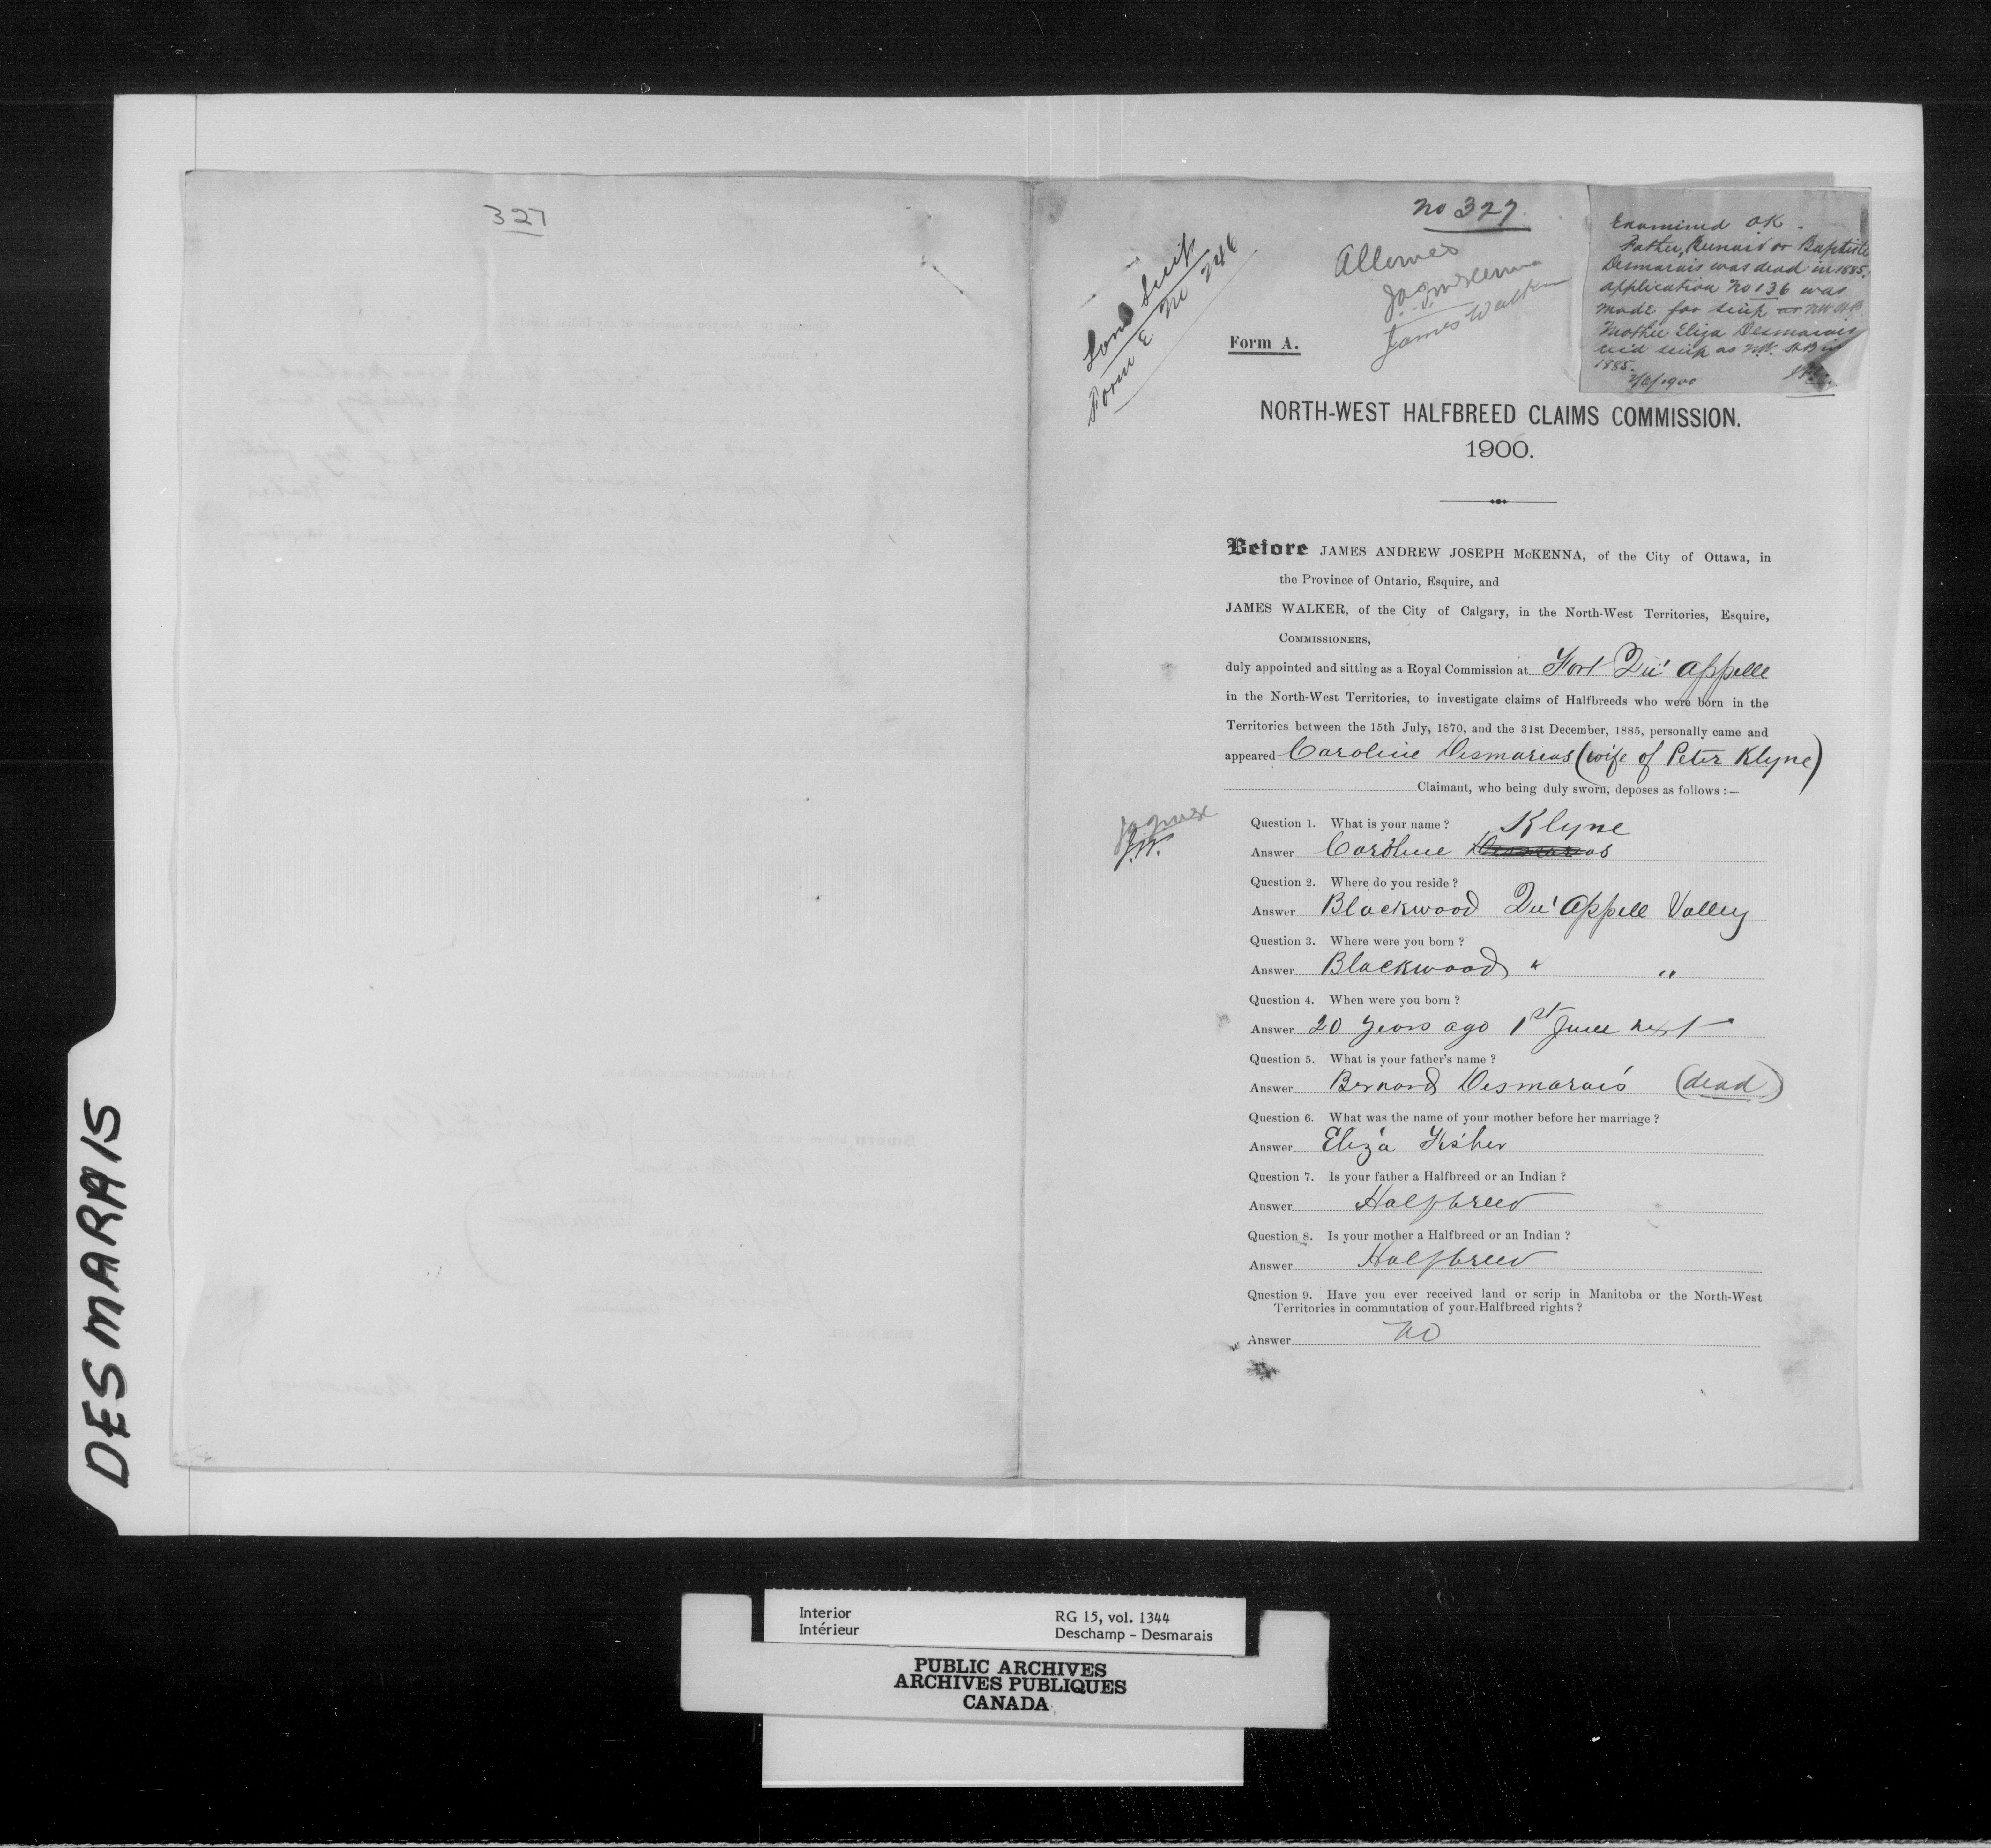 327
No 327.
Allowed
J.A.J. McKenna
James Walker
Land Scrip
Form E No 246
Examined OK.
Father, Bernard or Baptiste
Desmarais was dead in 1885.
application No 136 was
made for scrip as NW H.B.
Mother Eliza Desmarais
rec'd scrip as N.W. H.B in
1885.
1900
Form A.
NORTH-WEST HALFBREED CLAIMS COMMISSION.
1900.
Before JAMES ANDREW JOSEPH McKENNA, of the City of Ottawa, in
the Province of Ontario, Esquire, and
JAMES WALKER, of the City of Calgary, in the North-West Territories, Esquire,
COMMISSIONERS,
duly appointed and sitting as a Royal Commission at Fort Qu'appelle
in the North-West Territories, to investigate claims of Halfbreeds who were born in the
Territories between the 15th July, 1870, and the 31st December, 1885, personally came and
appeared Caroline Desmarias (wife of Peter Klyne)
Claimant, who being duly sworn, deposes as follows :—
Question 1. What is your name ? Klyne
Answer Caroline Desmarias
J.W.
Question 2. Where do you reside ?
Answer Blackwood Qu'appell Valley
Question 3. Where were you born ?
Answer Blackwood " "
Question 4. When were you born ?
Answer 20 years ago 1st June next
Question 5. What is your father's name ?
Answer Bernard Desmarais (dead)
Question 6. What was the name of your mother before her marriage ?
Answer Eliza Fisher
Question 7. Is your father a Halfbreed or an Indian ?
Answer Halfbreed
Question 8. Is your mother a Halfbreed or an Indian ?
Answer Halfbreed
Question 9. Have you ever received land or scrip in Manitoba or the North-West
Territories in commutation of your Halfbreed rights ?
Answer no
DESMARAIS
Interior
Intérieur
RG 15, vol. 1344
Deschamp - Desmarais
PUBLIC ARCHIVES
ARCHIVES PUBLIQUES
CANADA